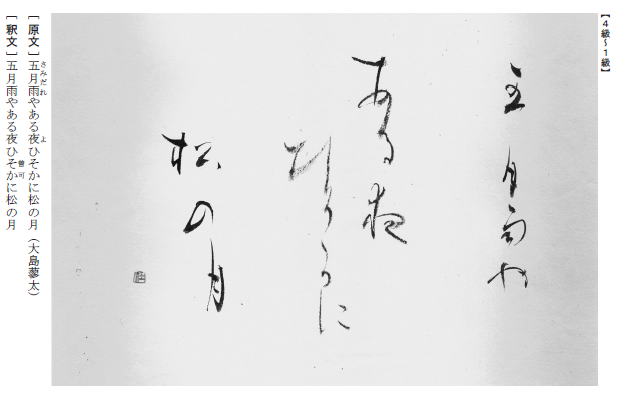 【4級~1級】
五月雨や
ある夜
ひそかに
松の月
［原文］五月雨やある夜ひそかに松の月（大島蓼太）
さみだれ
よ
［釈文］五月雨やある夜ひそかに松の月
曽可